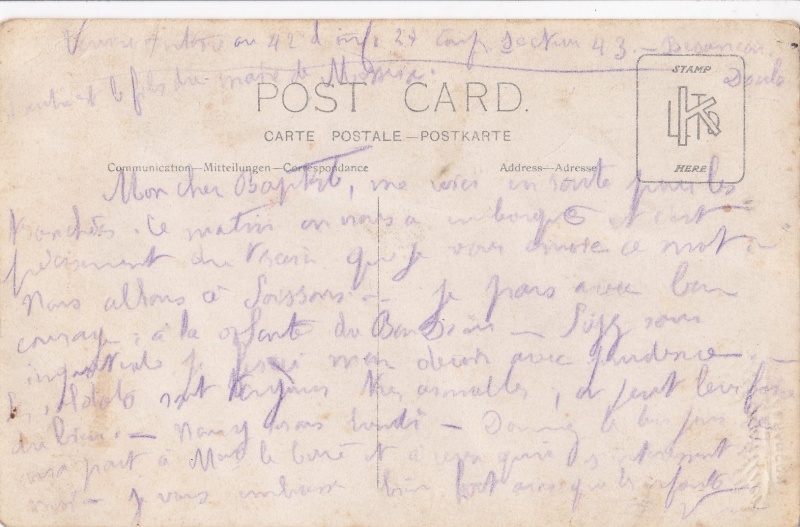 au 42 d' inf 27 Comp Secteur 43. – Besançon.
le fils du maire de Doubs
POST CARD.
CARTE POSTALE—POSTKARTE
STAMP
HERE
Communication—Mitteilungen—Correspondance
Address—Adresse
Mon cher Baptiste, me voici en route pour les
tranchées. Ce matin on nous a embarqués et c'est
précisément du train que je vous envoie ce mot –
Nous allons à Soissons. – Je pars avec bon
courage, à la volonté du Bon Dieu – Soyez sans
inquiétude je ferai mon devoir avec prudence. –
soldats sont toujours très aimables, on peut leur faire
du bien. – lundi – Donnez le bonjour
part à Mr le curé et à ceux qui s'intéressent
moi – Je vous embrasse bien fort ainsi que les enfants